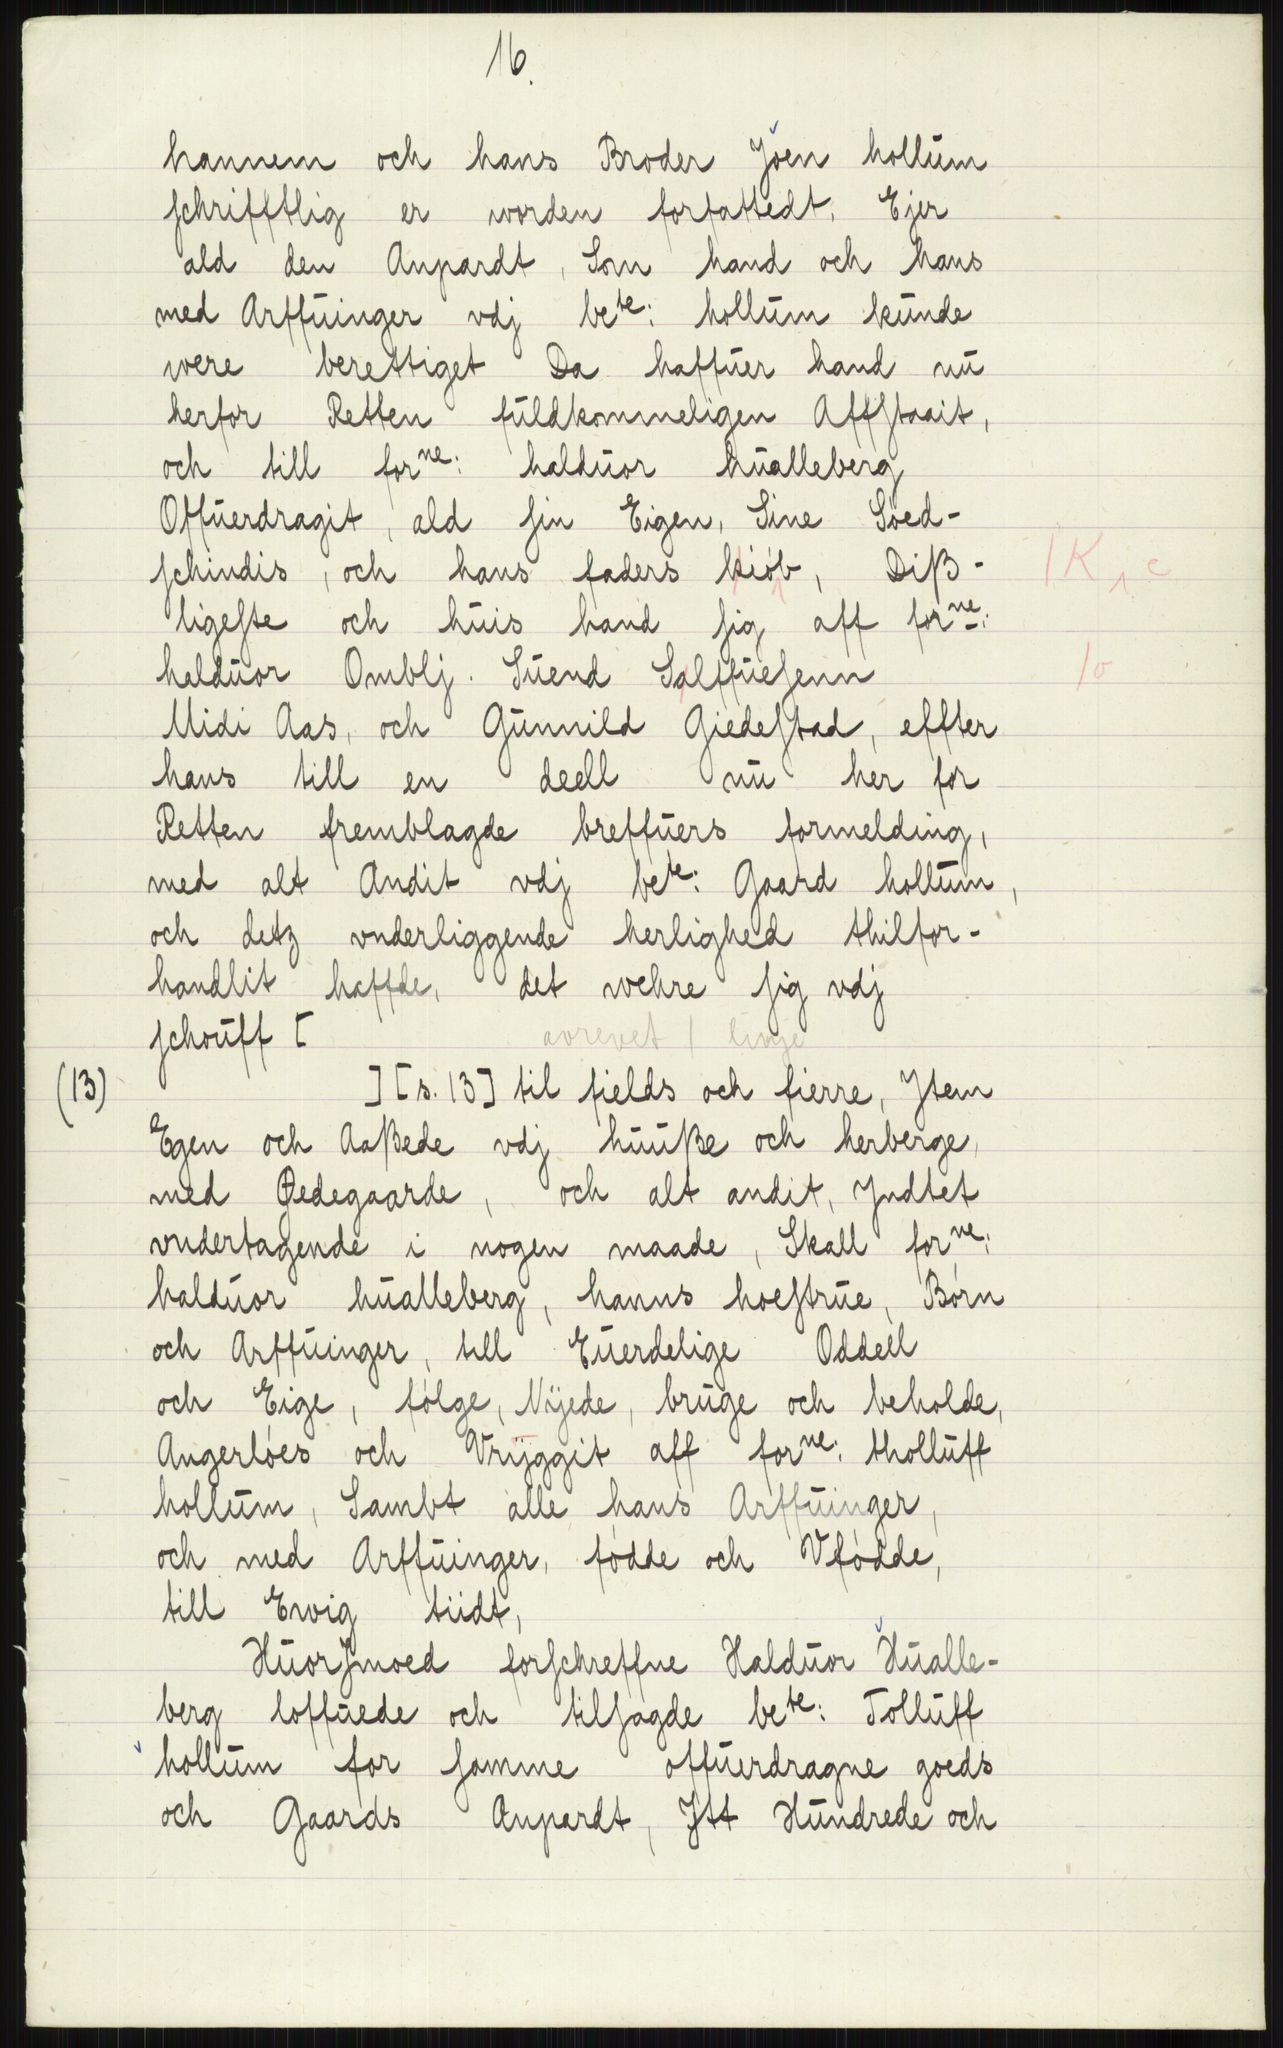 16.
hannem och hans Broder Joen hollum
schrifftlig er worden forfattedt, Ejer
ald den Anpardt, Som hand och hans
med Arffuinger vdj bete: hollum kunde
were berettiget Da haffuer hand nu
herfor Retten fuldkommeligen Affstaait,
och till forne: halduor hualleberg
Offuerdragit, ald sin Eigen, Sine Söed-
schindis, och hans faders kiöb, Diß- /K 1 c
ligeste och huis hand sig aff forne:
halduor Omblj. Suend Salffuesenn /o
Midi Aas, och Gunnild Giedestad, effter
hans till en deell nu her for
Retten fremblagde breffuers formelding,
med alt Andit vdj bete: Gaard hollum,
och detz vnderliggende herlighed thilfor-
handlit haffde, det wehre sig vdj
schouff [ avrevet 1 linje
(13) ] [s. 13] til fields och fierre, Jtem
Egen och Aaßede vdj huuße och herberge,
med Ødegaarde, och alt andit, Jndtet
vndertagende i nogen maade, Skall forne:
halduor hualleberg, hanns hoestrue, Börn
och Arffuinger, till Euerdelige Oddell
och Eige, fölge, Nÿede, bruge och beholde,
Angerlöes och Vrÿggit aff forne: tholluff
hollum, Sambt alle hans Arffuinger,
och med Arffuinger, födde och Vfödde,
till Ewig tiidt,
Huorsmoed forschreffne Halduor Hualle-
berg loffuede och tilsagde bete: Tolluff
hollum for samme offuerdragne goeds
och Gaards Anpardt, Jtt Hundrede och